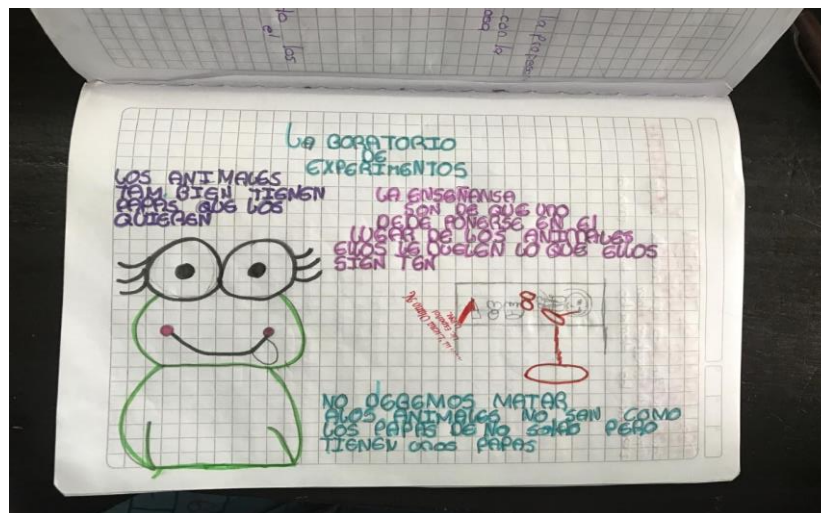 La BORATORIO
DE
EXPERIMENTOS
LOS ANIMALES
TAM BIEN TIENEN
PAPAS QUE LOS
QUIEREN
LA ENSEÑANSA
SON DE QUE UNO
DEBE PONERSE EN El
LUGAR DE LOS ANIMALES
EllOS LE DUELEN LO QUE EllOS
SIEN TEN
NO DEBEMOS MATAR
ALOS ANIMALES NO SAN COMO
LOS PAPAS DE NO SOLRO PERO
TIENEN UNOS PAPAS
con la
el los